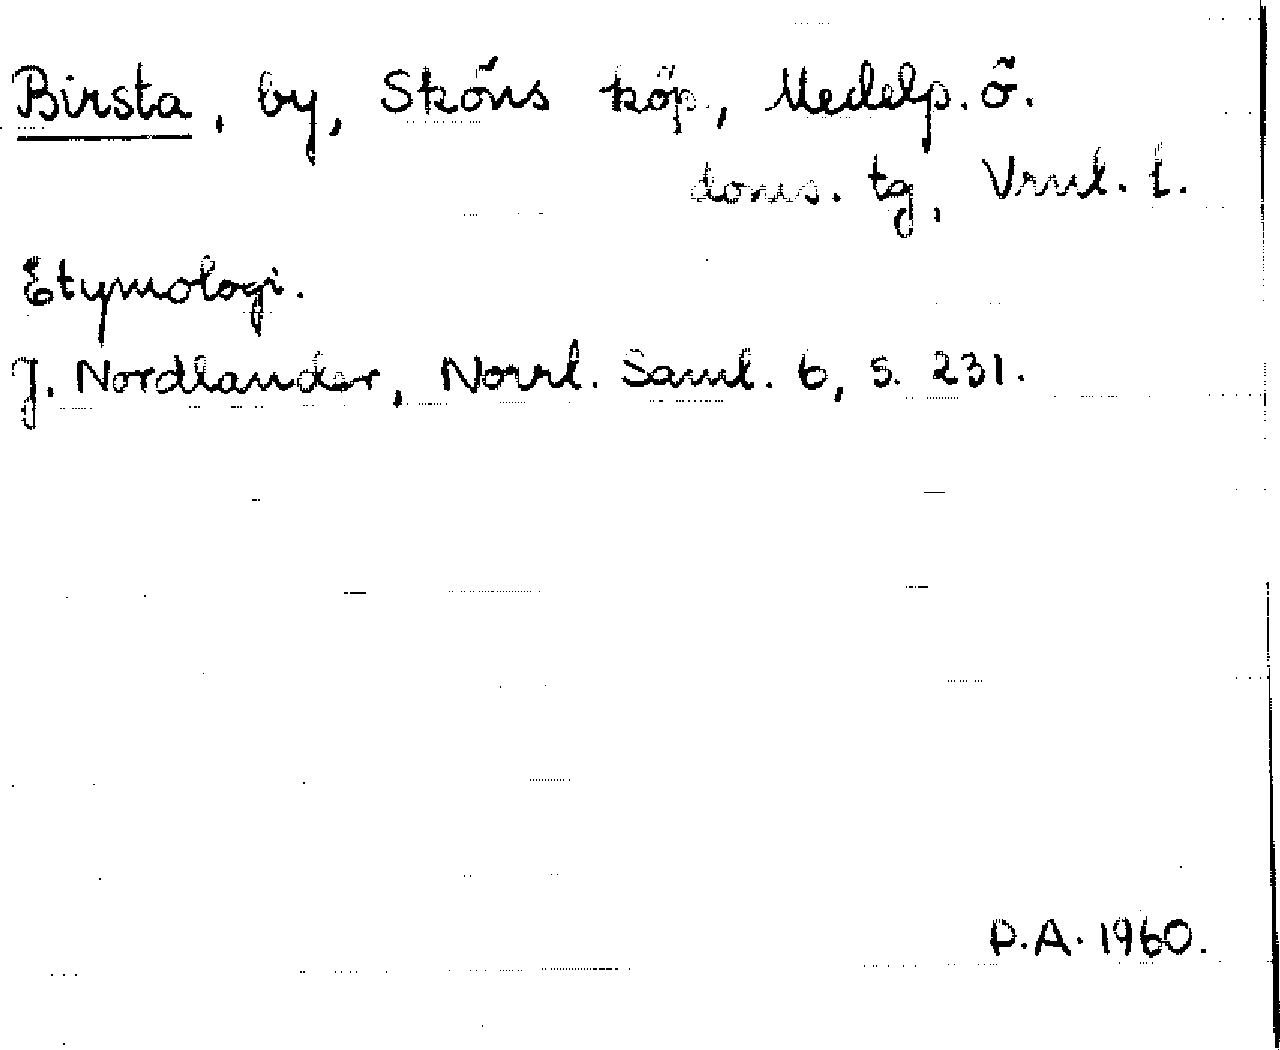 Birsta, by, Sköns köp., Medelp. ö.
doms. tg, Vrnl. l.
Etymologi.
J. Nordlander, Norrl. Saml. 6, s. 231.
P.A. 1960.